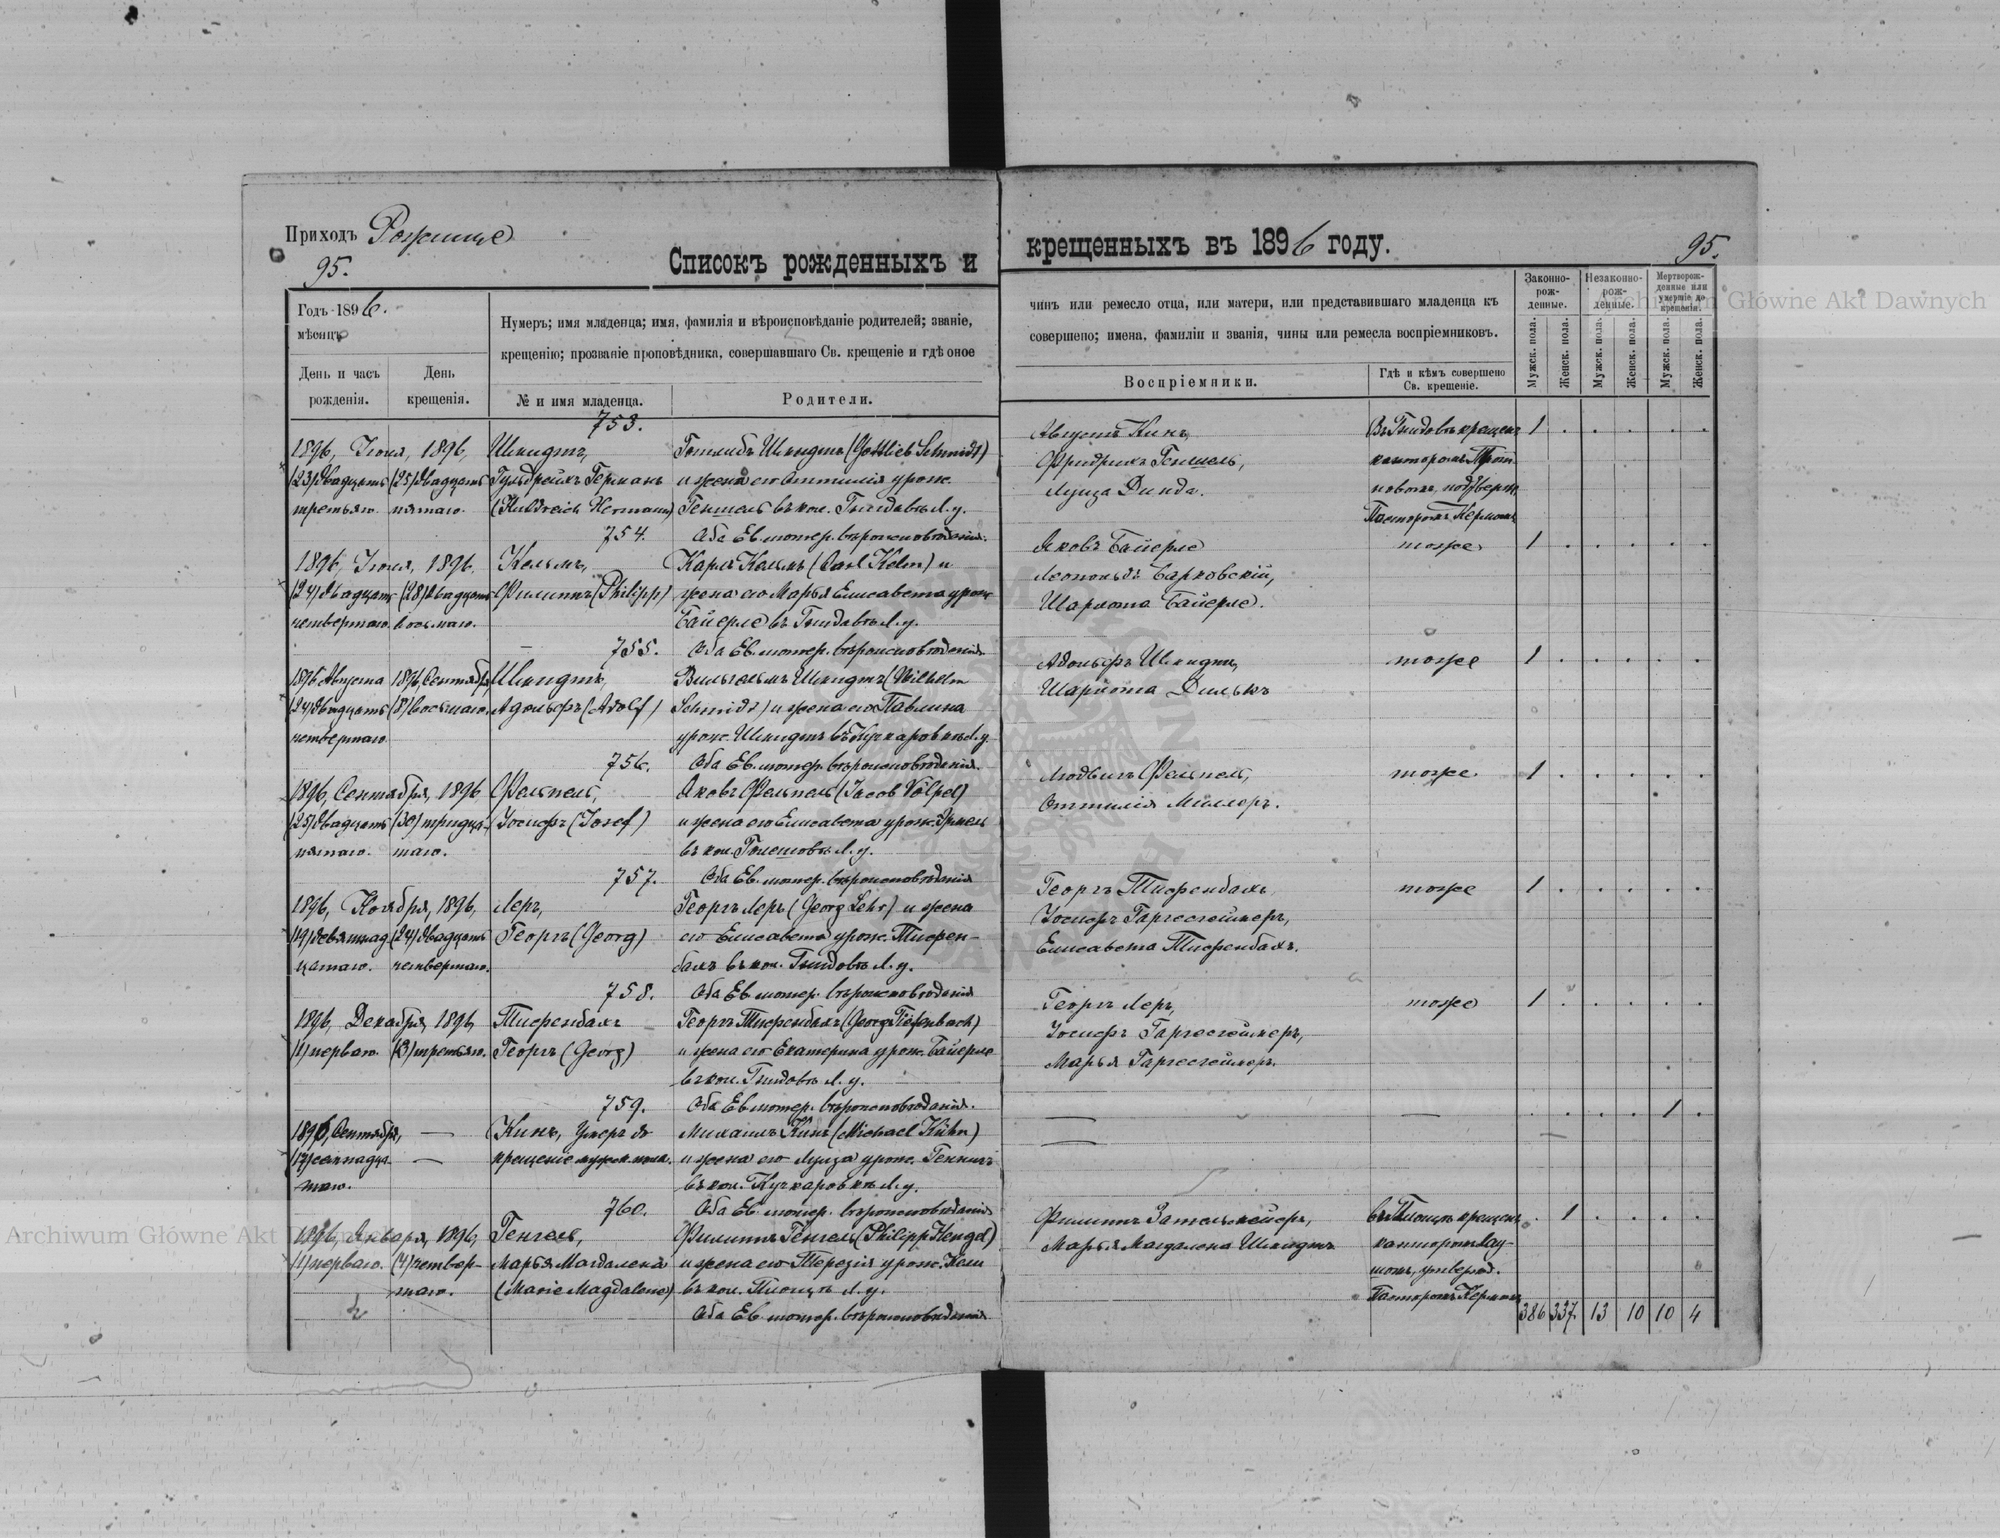 Приходъ Рожище
95.
Списокъ рожденныхъ и
Годъ 1896.
мѣсяцъ
День и часъ рожденія.
День крещенія.
Нумеръ; имя младенца; имя, фамилія и вѣроисповѣданіе родителей; званіе,
крещенію; прозваніе проповѣдника, совершавшаго Св. крещеніе и гдѣ оное
№ и имя младенца.
Родители.
753.
1896, Іюня, 1896, Шмидтъ, Готлибъ Шмидтъ (Gottlieb Schmidt)
(23) двадцать (25) двадцать Гульдрейхъ Германъ и жена его Оттилія урож.
третьяго. пятаго. (Huldreich Hermann) Геншель въ кол. Гнидавѣ Л. у.
754. Оба Ев. лютер. вѣроисповѣданія.
1896, Іюня, 1896, Кельмъ, Карлъ Кельмъ (Carl Kelm) и
(24) двадцать (28) двадцать Филиппъ (Philipp) жена его Марья Елисавета урож.
четвертаго. восьмаго. Байерле въ Гнидавѣ Л. у.
755. Оба Ев. лютер. вѣроисповѣданія.
1896 Августа 1896, Сентября, Шмидтъ, Вильгельмъ Шмидтъ (Wilhelm
(24) двадцать (8) восьмаго. Адольфъ (Adolf) Schmidt) и жена его Павлина
четвертаго. урож. Шмидтъ въ Кучкаровкѣ Л. у.
756. Оба Ев. лютер. вѣроисповѣданія.
1896, Сентября, 1896 Фельпель, Яковъ Фельпель (Jacob Völpel)
(25) двадцать (30) тридца- Іосифъ (Josef) и жена его Елисавета урож.
пятаго. таго. въ кол. Л. у.
757. Оба Ев. лютер. вѣроисповѣданія
1896, Ноября, 1896, Леръ, Георгъ Леръ (Georg Lehr) и жена
(19) девятнад (24) двадцать Георгъ (Georg) его Елисавета урож. Тифен-
цатаго. четвертаго. бахъ въ кол. Гнидавѣ Л. у.
758. Оба Ев. лютер. вѣроисповѣданія
1896, Декабря, 1896, Тифенбахъ Георгъ Тифенбахъ (Georg Tiefenbach)
(1) перваго. (3) третьяго. Георгъ (Georg) и жена его Екатерина урож. Байерле
въ кол. Гнидавѣ Л. у.
759. Оба Ев. лютер. вѣроисповѣданія.
1896, Сентября, — Кинъ, Умеръ до Михаилъ Кинъ (Michael Kühn)
(17) семнадца- — крещенія мужск. пола. и жена его Луиза урож. Геннигъ
таго. въ кол. Кучкаровкѣ Л. у.
760. Оба Ев. лютер. вѣроисповѣданія
1896, Января, 1896, Генгель, Филиппъ Генгель (Philipp Hengel)
(1) перваго. (4) четвер- Марья Магдалена и жена его Терезія урож.
таго. (Marie Magdalene) въ кол. Л. у.
Оба Ев. лютер. вѣроисповѣданія
крещенныхъ въ 1896 году.
95.
чинъ или ремесло отца, или матери, или представившаго младенца къ
совершено; имена, фамиліи и званія, чины или ремесла воспріемниковъ.
Воспріемники.
Гдѣ и кѣмъ совершено
Св. крещеніе.
Законно-
рож-
денные.
Незаконно-
рож-
денные.
Мертворож-
денные или
умершіе до
крещенія.
Мужск. пола.
Женск. пола.
Мужск. пола.
Женск. пола.
Мужск. пола.
Женск. пола.
Августъ Кинъ, Въ Гнидавѣ крещенъ 1
Фридрихъ Геншель, канторомъ
Луиза Динда. подтвержд.
Пасторомъ Керномъ
Яковъ Байерле тоже 1
Леопольдъ Барковскій,
Шарлота Байерле.
Адольфъ Шмидтъ, тоже 1
Шарлота
Людвигъ Фельпель, тоже 1
Оттилія Миллеръ.
Георгъ Тифенбахъ тоже 1
Іосифъ Гаргесгеймеръ,
Елисавета Тифенбахъ.
Георгъ Леръ, тоже 1
Іосифъ Гаргесгеймеръ,
Марья Гаргесгеймеръ.
— — 1
—
Филиппъ крещен. 1
Марья Магдалена Шмидтъ канторомъ Лау-
утвержд.
Пасторомъ Керномъ
386 337. 13 10 10 4
Archiwum Główne Akt Dawnych
Archiwum Główne Akt Dawnych